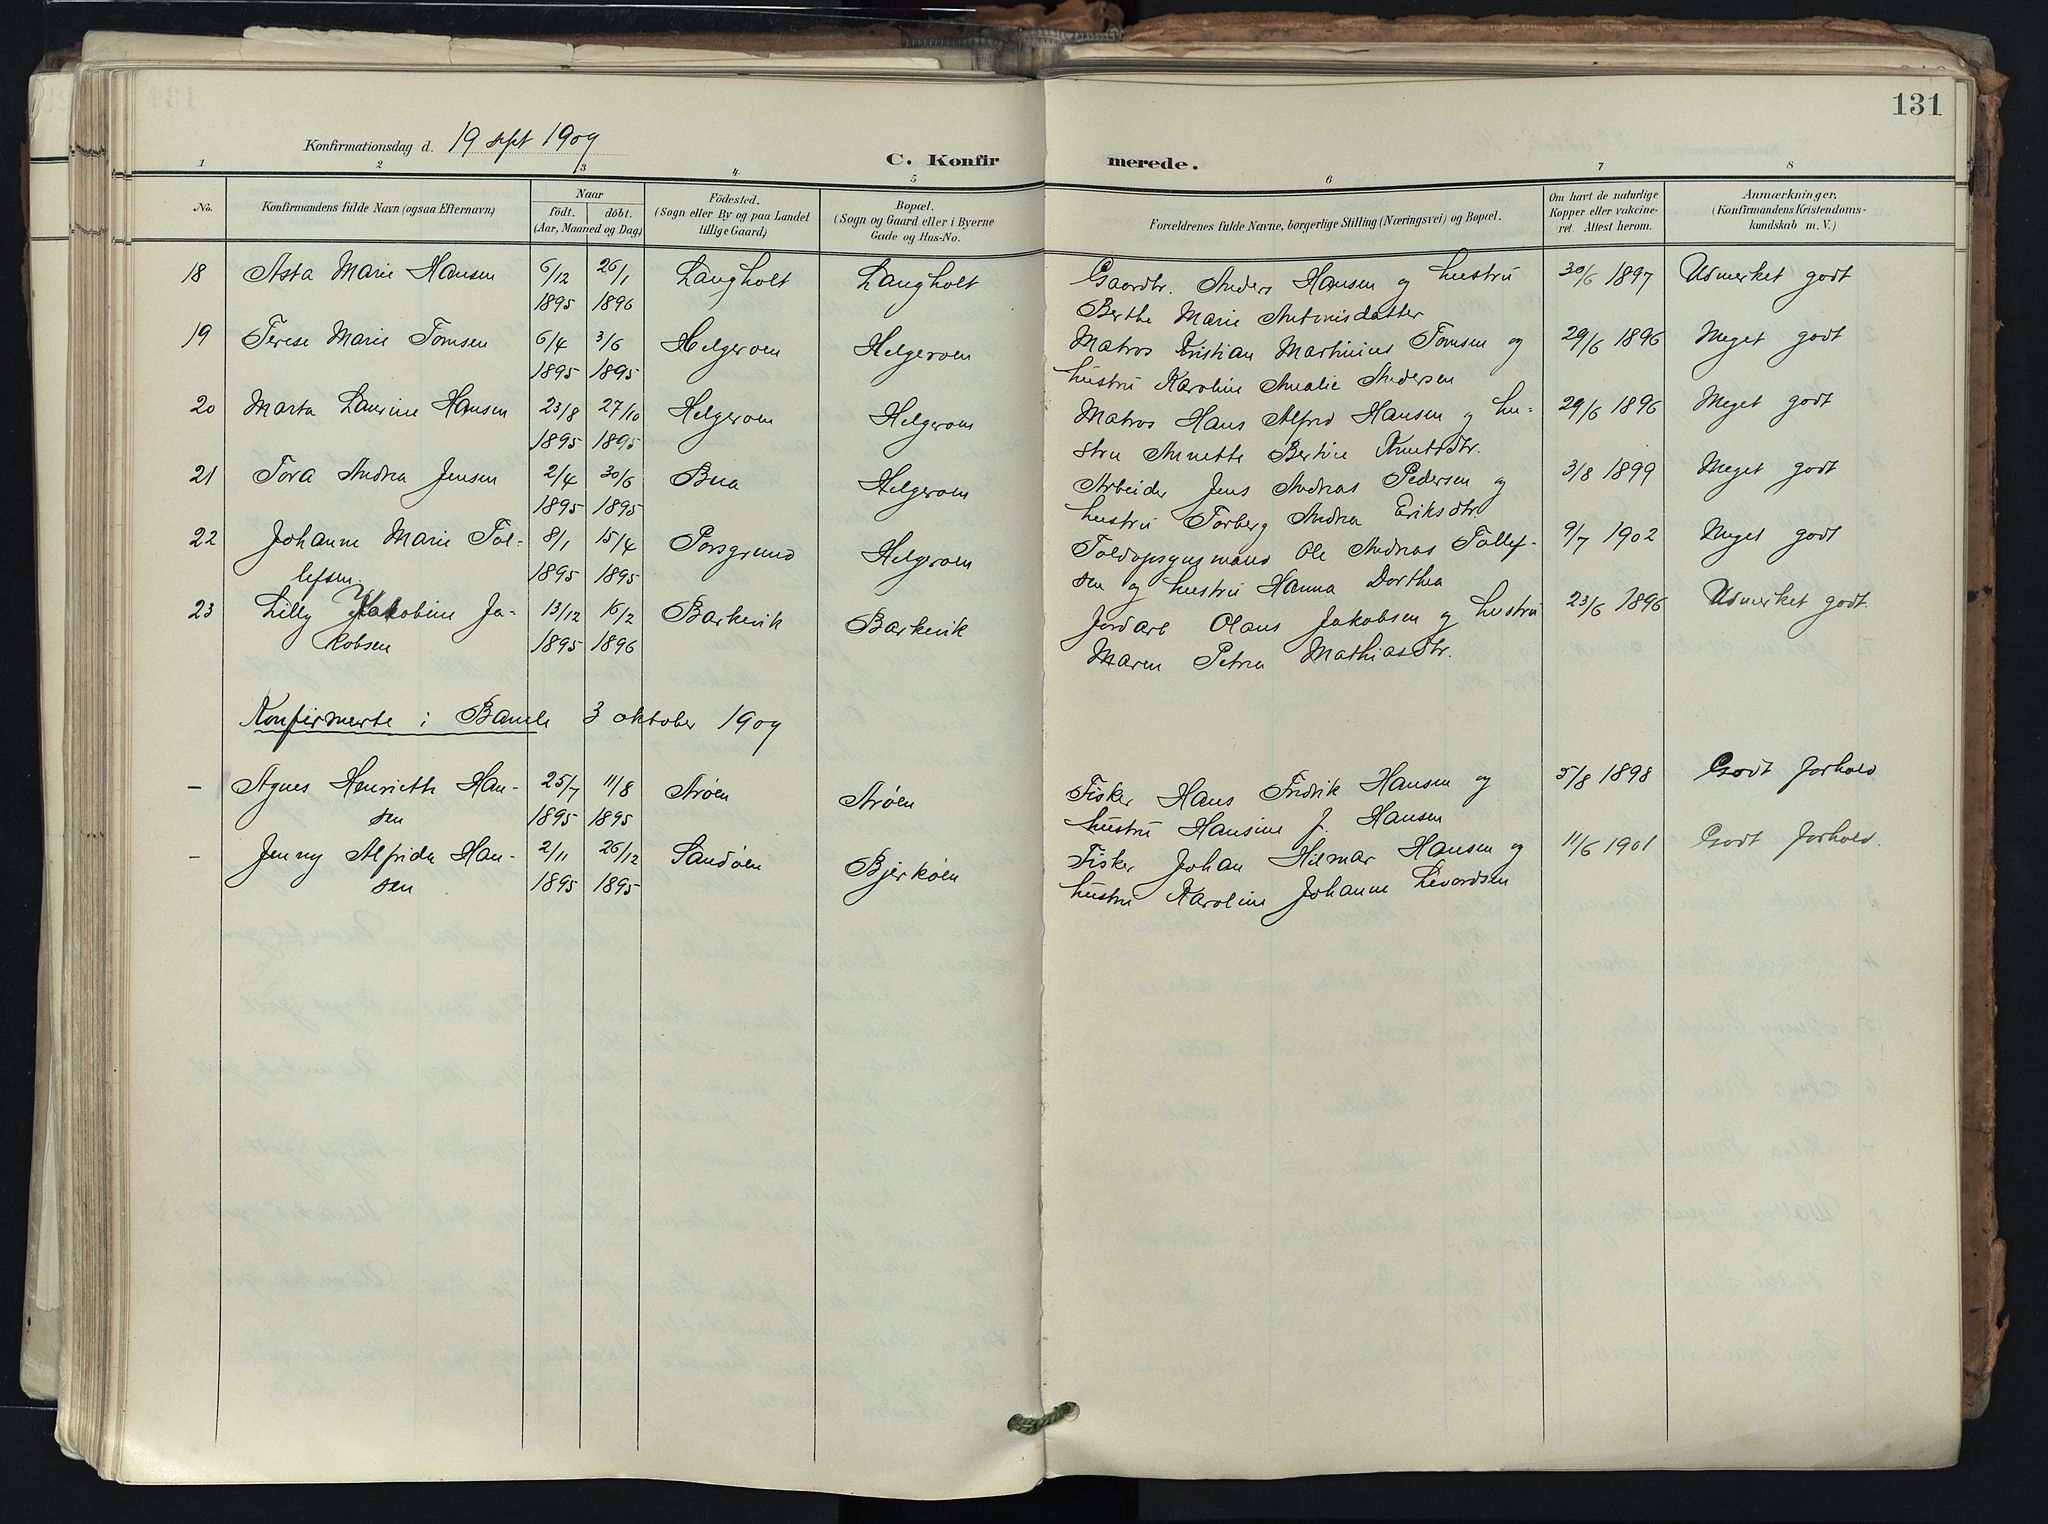 131
Konfirmationsdag d. 19 sept 1909
C. Konfirmerede.
1 2 3 4 5 6 7 8
No.
Konfirmandens fulde Navn (ogsaa Efternavn)
Naar
födt. döbt.
(Aar, Maaned og Dag)
Födested.
(Sogn eller By og paa Landet
tillige Gaard)
Bopæl.
(Sogn og Gaard eller i Byerne
Gade og Hus-No.
Forældrenes fulde Navne, borgerlige Stilling (Næringsvei) og Bopæl.
Om havt de naturlige
Kopper eller vakcine-
ret. Attest herom.
Anmærkninger.
(Konfirmandens Kristendoms-
kundskab m. V.)
18 Asta Marie Hansen 6/12 26/1 Langholt Langholt Gaardbr. Anders Hansen og hustru 30/6 1897 Udmerket godt
1895 1896 Berthe Marie Antonisdatter
19 Terese Marie Tomsen 6/4 3/6 Helgeroen Helgeroen Matros Kristian Martinius Tomsen og 29/6 1896 Meget godt
1895 1895 hustru Karoline Amalie Andersen
20 Marta Laurine Hansen 23/8 27/10 Helgeroen Helgeroen Matros Hans Alfred Hansen og hu-
29/6 1896 Meget godt
1895 1895 stru Annette Bertine Knutsdtr.
21 Tora Andrea Jensen 2/4 30/6 Bua Helgeroen Arbeider Jens Andreas Pedersen og 3/8 1899 Meget godt
1895 1895 hustru Torberg Andrea Eriksdtr
22 Johanne Marie Tol- 8/1 15/4 Porsgrund Helgeroen Toldopsynsmand Ole Andreas Tollef- 9/7 1902 Meget godt
lefsen. 1895 1895 sen og hustru Hanna Dorthea
23 Lilly Jakobine Ja- 13/12 16/2 Barkevik Barkevik Jordarb Olaus Jakobsen og hustru 23/6 1896 Udmerket godt.
kobsen 1895 1896 Maren Petrea Mathiasdtr.
Konfirmerte i Bamle 3 oktober 1909
- Agnes Henriette Han- 25/7 11/8 Arøen Arøen Fisker Hans Fredrik Hansen og 5/8 1898 Godt Forhold
sen 1895 1895 hustru Hansine J. Hansen
- Jenny Alfrida Han- 2/11 26/12 Sandøen Bjerkøen Fisker Johan Hilmar Hansen og 11/6 1901 Godt Forhold.
sen 1895 1895 hustru Karoline Johanne Levordsen